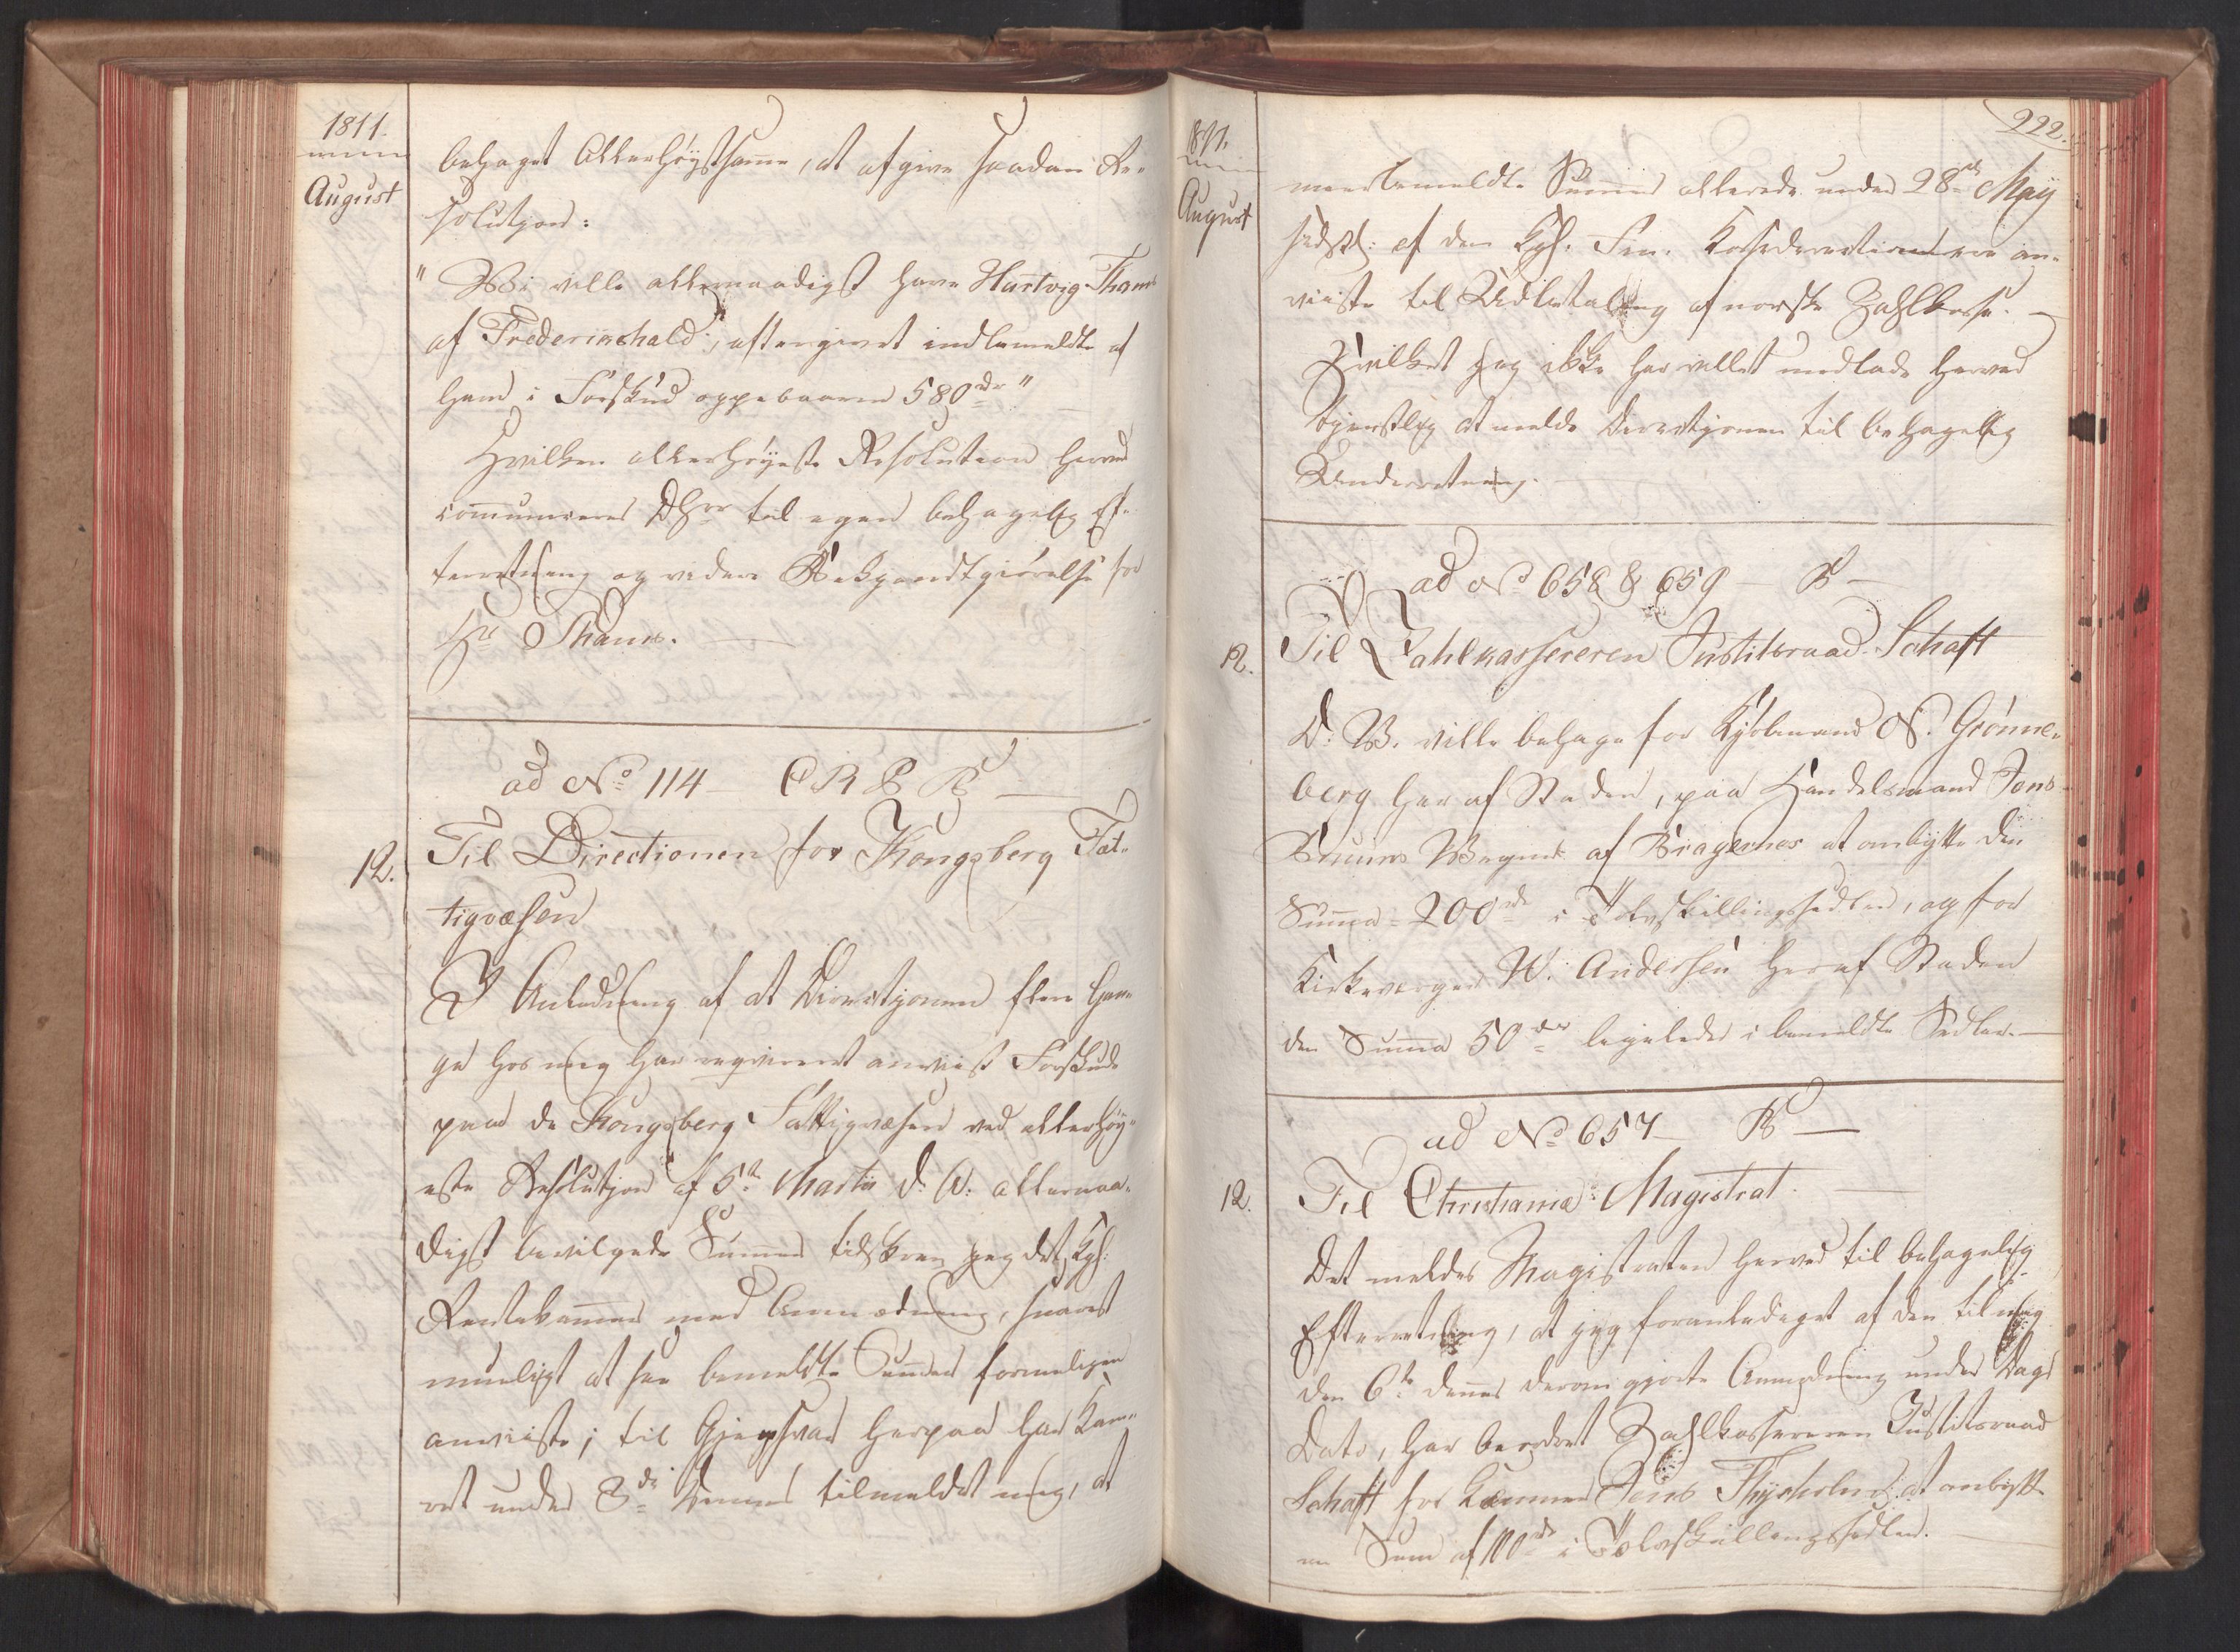 1811.
August
behaget Allerhöystsamme, at afgive saadan Re-
solutjon:
"Wi ville allernaadigst have Hartvig Thams
af Friderichshald, eftergivet indbemeldte af
ham i Forskud oppebaarne 580 rdr"
Hvilken allerhöyeste Resolution herved
communiceres DHrr til egen behagelig Ef-
terretning og videre Bekjendtgiörelse for
Hr Thams.
ad No 114 C R B B
12.
Til Directionen for Kongsberg Fat-
tigvæsen
I Anledning af at Directjonen flere Gan-
ge hos mig har reqvireret anviist Forskud
paa de Kongsberg Fattigvæsen ved allerhöy-
este Resolutjon af 5te Martii d: A: allernaa-
digst bevilgede Summer tilskrev jeg det Kgl:
Rentekammer med Anmodning, snarest
mueligt at see bemeldte Summer formeligen
anviiste; til Gjensvar herpaa har Kam-
ret under 3die Dennes tilmeldet mig, at
1811.
August
222.
meerbemeldte Summer allerede under 28de Maij
sidstl: af den Kgl. Fin. Kassedirection ere an-
viiste til Udbetaling af norske Zahlkasse.
Hvilket jeg ikke har villet undlade herved
tjenstlig at melde Directjonen til behagelig
Underretning.
ad No 658 & 659 B
12.
Til Zahlkassereren Justitsraad Schaft
D: W. ville behage for Kjöbmand N. Grönne-
berg her af Staden, paa Handelsmand Jens
Bruuns Vegne af Bragernes at ombytte den
Summa 200 rdr i Tolvskillingssedler, og for
Kirkeværger W. Andersen her af Staden
den Summa 50 rdr ligeledes i bemeldte Sedler.
ad No 657 B
12.
Til Christiania Magistrat.
Det meldes Magistraten herved til behagelig
Efterretning, at jeg foranlediget af den til mig
den 6te dennes derom gjorte Anmodning under Dags
Dato, har beordret Zahlkassereren Justitsraad
Schaft for Kæmner Jens Thÿsholm at ombytte
en Sum af 100 rdr i Tolvskillingssedler.